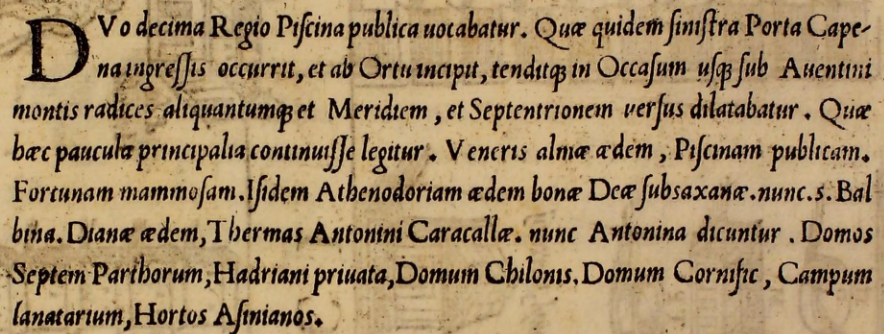 DVo decima Regio Piſcina publica uocabatur. Quæ quidem ſiniſtra Porta Cape-
na ingreſſis occurrit, et ab Ortu incipit, tenditq; in Occaſum uſq; ſub Auentini
montis radices aliquantumq; et Meridiem, et Septentrionem uerſus dilatabatur. Quæ
hæc paucula principalia continuiſſe legitur. Veneris almæ ædem, Piſcinam publicam.
Fortunam mammoſam. Iſidem Athenodoriam ædem bonæ Deæ ſubsaxanæ. nunc. s. Bal
bina. Dianæ ædem, Thermas Antonini Caracallæ. nunc Antonina dicuntur. Domos
Septem Parthorum, Hadriani priuata, Domum Chilonis. Domum Cornific, Campum
lanatarium, Hortos Aſinianos.